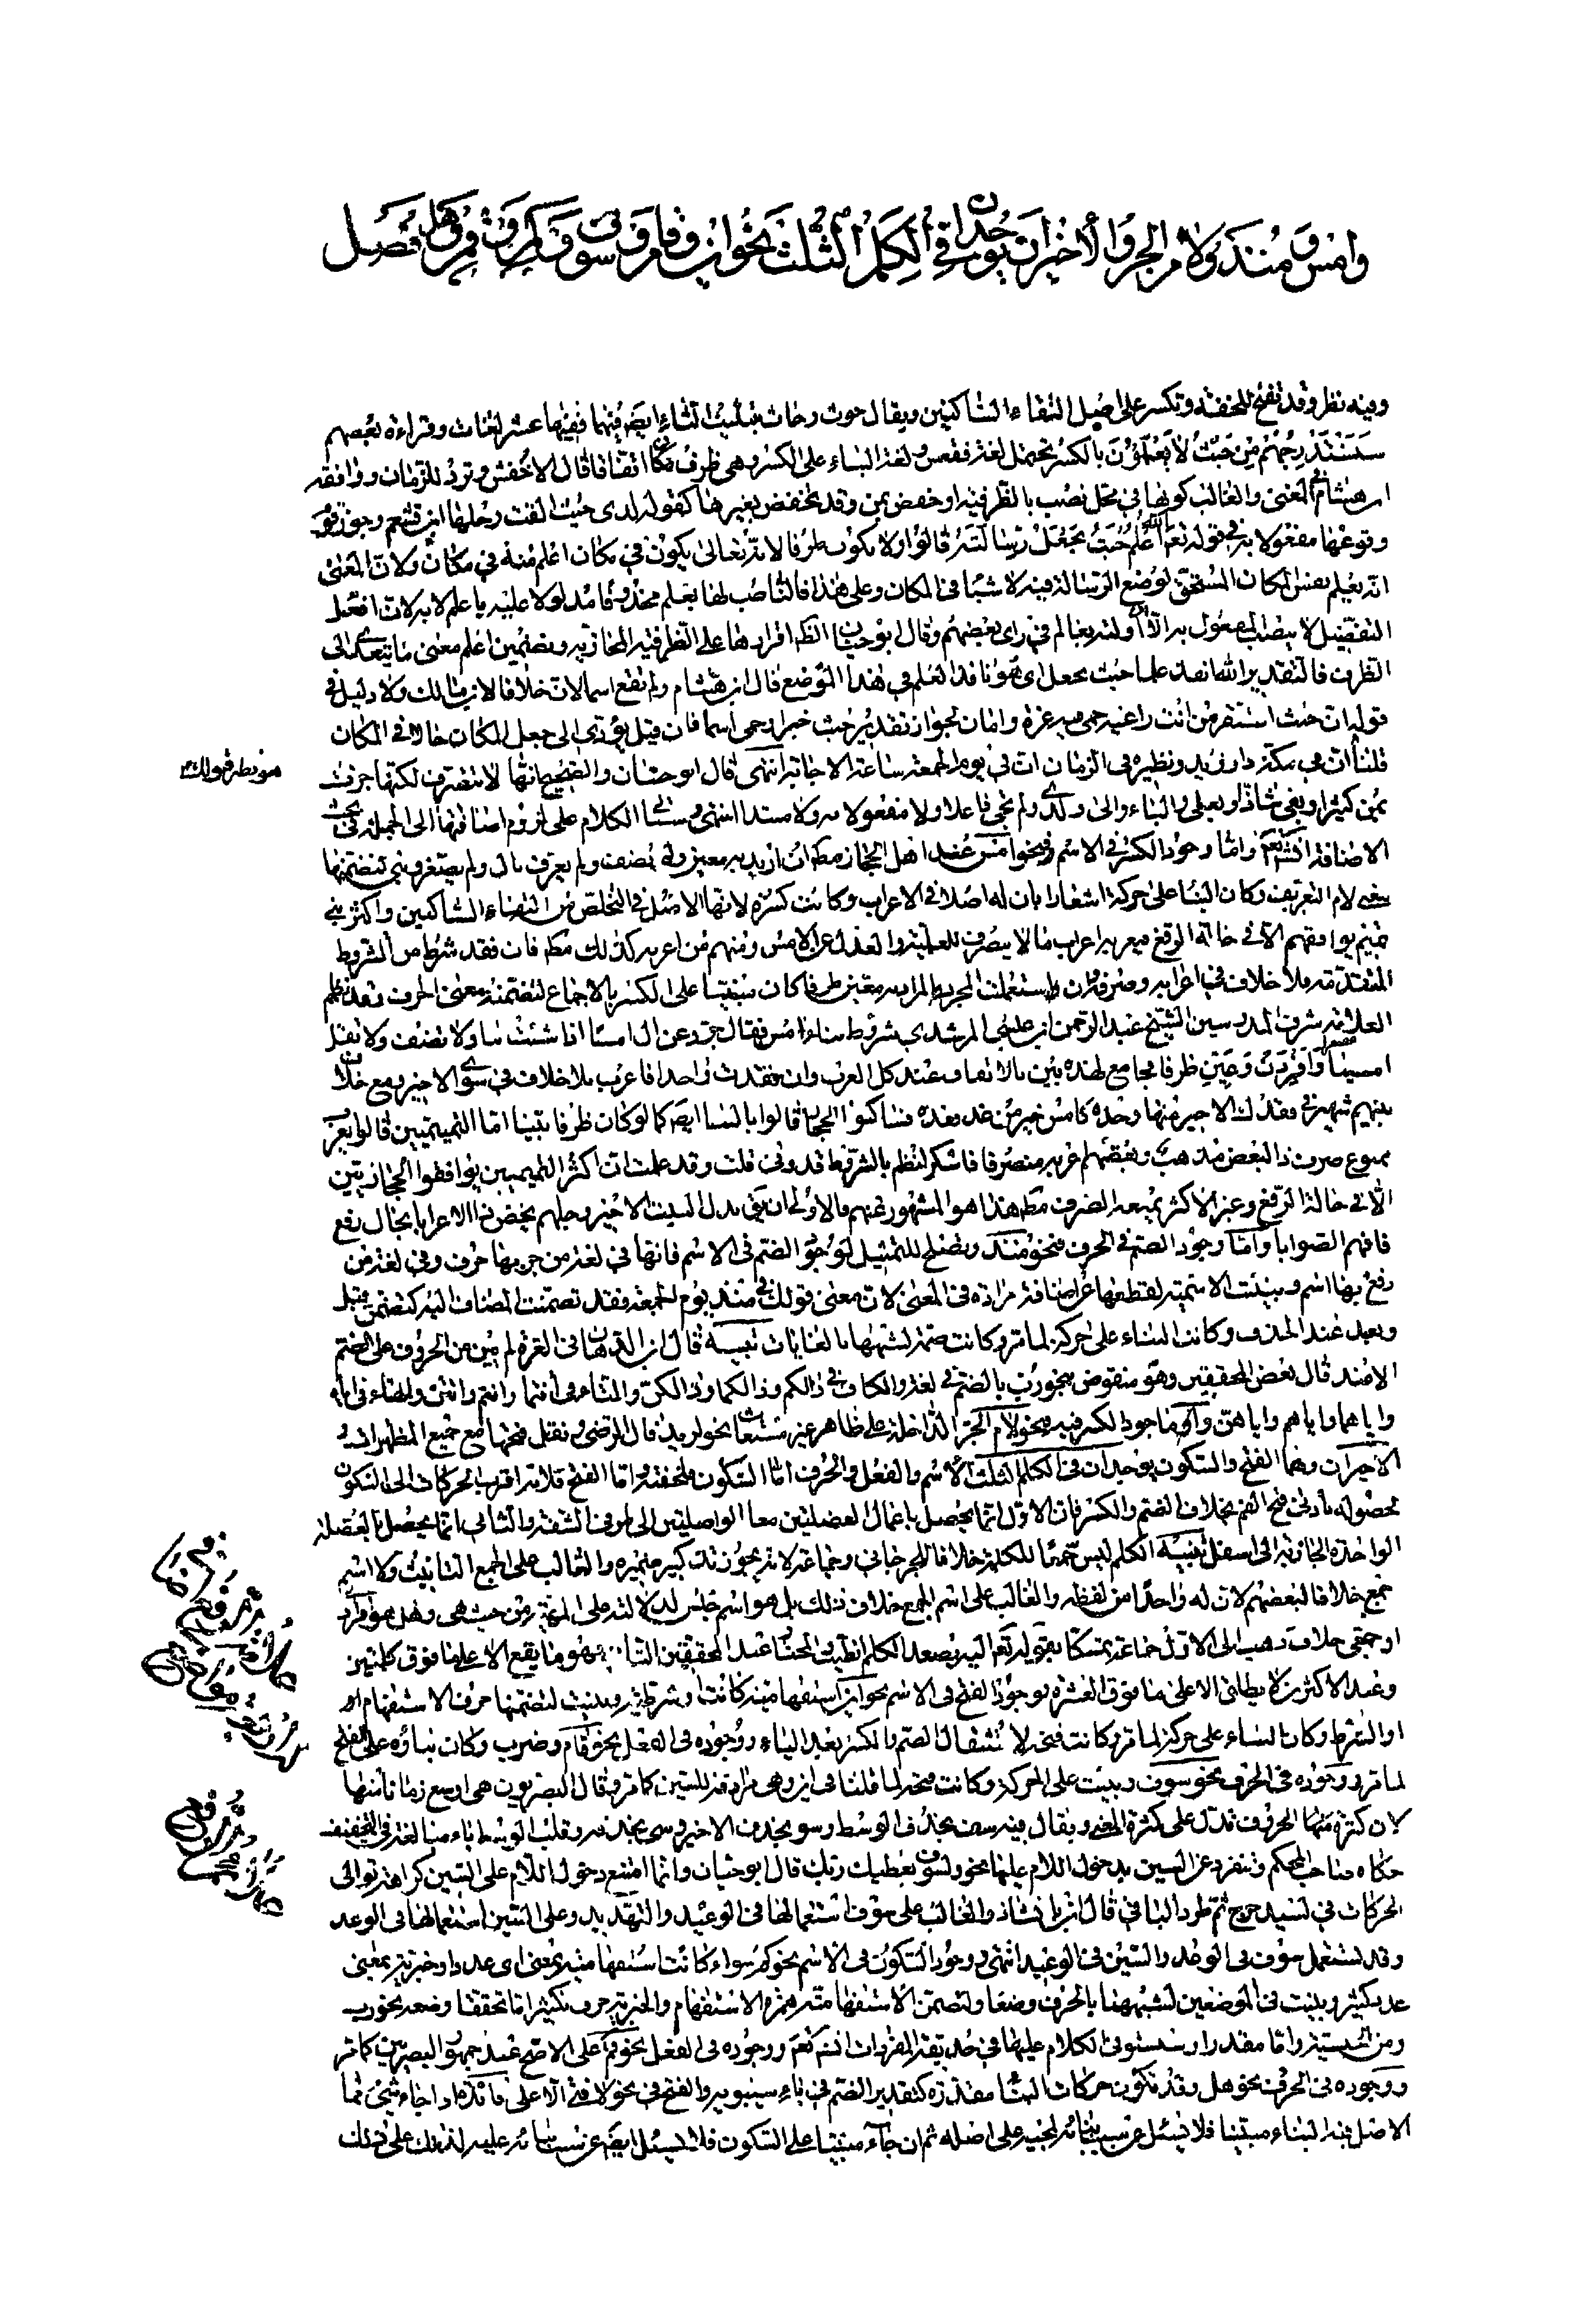 وامس ومنذ ولام الجر والأخيران يوجدان في الكلم الثلث نحو اين وقام وسوف وكم وقم وهل فصل
وفيه نظر وقد تفتح للخفة وتكسر على اصل التقاء الساكنين ويقال حوث وحاث بتثليث الثاء ايضا فيهما ففيها عشر لغات وقراءة بعضهم
سنستدرجهم من حيث لا يعلمون بالكسر تحتمل لغة فقعس ولغة البناء على الكسر وهي ظرف مكان اتفاقا قال الاخفش وترد للزمان ووافقه
ابن هشام المغنى والغالب كونها في محل نصب بالظرفية او خفض بمن وقد تخفض بغيرها كقوله لدى حيث القت رحلها ام قشعم وجوز
وقوعها مفعولا به في قوله تعم الله اعلم حيث يجعل رسالته قالوا ولا يكون ظرفا لانه تعالى يكون في مكان اعلم منه في مكان ولان المعنى
انه يعلم نفس المكان المستحق لوضع الرسالة فيه لا شيئا في المكان وعلى هذا فالناصب لها يعلم محذوفا مدلولا عليه باعلم لا به لان افعل
التفضيل لا ينصب المفعول به الا ان اولته بعالم في راى بعضهم وقال ابو حيان الظ اقرارها على الظرفية المجازية وتضمين اعلم معنى ما يتعدى الى
الظرف فالتقدير الله انفذ علما حيث يجعل اى هو نافذ العلم في هذا الموضع قال ابن هشام ولم تقع اسما لان خلافا لابن مالك ولا دليل في
قوله ان حيث استقر من انت راعيه حمى فيه عزة وامان لجواز تقدير حيث خبرا وحمى اسما فان قيل يؤدى الى جعل المكان حالا في المكان
قلنا ان في مكة دار زيد ونظيره في الزمان ان في يوم الجمعة ساعة الاجابة انتهى قال ابو حيان والصحيح انها لا تتصرف لكنها جرت
بمن كثيرا وبفي شاذا وبعلى والباء والى ولدى ولم تجئ فاعلا ولا مفعولا به ولا مبتدا انتهى وسيأتي الكلام على لزوم اضافتها الى الجملة في بحث
الاضافة انشاء الله تعم واما وجود الكسر في الاسم ففي نحو امس عند اهل الحجاز مط ان اريد به معين ولم يضف ولم يعرف بال ولم يصغر وبنى لتضمنها
معنى لام التعريف وكان البناء على حركة اشعارا بان له اصلا في الاعراب وكانت كسرة لانها الاصل في التخلص من التقاء الساكنين واكثر بنى
تميم يوافقهم الا في حالة الرفع فيعربه اعراب ما لا ينصرف للعلمية والعدل عن الامس ومنهم من اعربه كذلك مط فان فقد شرط من الشروط
المتقدمة فلا خلاف في اعرابه وصرفه وان استعملت المجرد المراد به معين ظرفا كان مبنيا على الكسر بالاجماع لتضمنه معنى الحرف وقد نظم
العلامة شرف المدرسين الشيخ عبد الرحمن بن عيسى المرشدي شروط بناء امس فقال جرد عن ال امسا اذا شئت بنا ولا تضف ولا تقل
اميسنا وافردن وعين ظرفا جامع لهذه بين بالاتفاق عند كل العرب وان فقدت واحدا فاعرب بلا خلاف في سوى الاخير مع خلاف
بينهم شهير في فقدك الاخير منها وحده كامس خير من غد بعده فساكنوا الحجاز قالوا بالبنا ايض كما لو كان ظرفا بينا اما التميميين قالوا يعرب
ممنوع صرف ذا لبعض مذهب وبعضهم اعربه منصرفا فاشكر لنظم بالشروط قد وفى قلت وقد علمت ان اكثر التميميين يوافقوا الحجازيين
الا في حالة الرفع وغير الاكثر يمنعه الصرف مط هذا هو المشهور عنهم فالاولى ان يق بدل البيت الاخير وجلهم يخص ذا الاعرابا بحال رفع
فافهم الصوابا واما وجود الضم في الحرف فنحو منذ ويصلح للتمثيل لوجود الضم في الاسم فانها في لغة من جر بها حرف وفي لغة من
رفع بها اسم وبنيت الاسمية لقطعها عن اضافة مرادة في المعنى لان معنى قولك منذ يوم الجمعة فقد تضمنت المضاف اليه كتضمن قبل
وبعد عند الحذف وكانت البناء على حركة لما مر وكانت ضمة لشبهها بالغايات تنبيه قال ابن الدهان في الغرة لم يبن من الحروف على الضم
الا منذ قال بعض المحققين وهو منقوض بنحو رب بالضم في لغة والكاف في ذالكم وذالكما وذالكن والتاء في انتما وانتم وانتن والهاء في اياه
واياهما واياهم واياهن واما وجود الكسر فيه فنحو لام الجر الداخلة على ظاهر غير مستغاث نحو لزيد قال الرضى ونقل فتحها مع جميع المظهرات و
الاخيران وهما الفتح والسكون يوجدان في الكلم الثلث الاسم والفعل والحرف اما السكون فلخفته واما الفتح فلانه اقرب الحركات الى السكون
لحصوله بادنى فتح الفم بخلاف الضم والكسر فان الاول انما يحصل باعمال العضلتين معا الواصلتين الى طرفى الشفة والثاني انما يحصل بالعضلة
الواحدة الجاذبة الى اسفل تنبيه الكلم ليس جمعا للكلمة خلافا للجرجاني وجماعة لانه يجوز تذكير ضميره والغالب على الجمع التانيث ولا اسم
جمع خلافا لبعضهم لان له واحدا من لفظه والغالب على اسم الجمع خلاف ذلك بل هو اسم جنس لدلالته على المهية من حيث هي وهل هو افرادى
او جمعى خلاف ذهب الى الاول جماعة تمسكا بقوله تعم اليه يصعد الكلم الطيب والمختار عند المحققين الثاني وهو ما يقع الا على ما فوق كلمتين
وعند الاكثرين لا يطلق الا على ما فوق العشرة فوجود الفتح في الاسم نحو اين استفهامية كانت او شرطية وبنيت لتضمنها حرف الاستفهام او
او الشرط وكان البناء على حركة لما مر وكانت فتحة لاستثقال الضم والكسر بعد الياء ووجوده في الفعل نحو قام وضرب وكان بناؤه على الفتح
لما مر ووجوده في الحرف نحو سوف وبنيت على الحركة وكانت فتحة لما قلنا في اين وهي مرادفة للسين كما مر وقال البصريون هي اوسع زمانا منها
لان كثرة الحروف تدل على كثرة المعنى ويقال فيه سف بحذف الوسط وسو بحذف الاخير وسى بحذفه وقلب الوسط ياء مبالغة في التخفيف
حكاه صاحب المحكم وتنفرد عن السين بدخول اللام عليها نحو ولسوف يعطيك ربك قال ابو حيان وانما امتنع دخول اللام على السين كراهة توالى
الحركات في لسيدحرج ثم طرد الباقي قال ابن بابشاذ والغالب على سوف استعمالها في الوعيد والتهديد وعلى السين استعمالها في الوعد
وقد تستعمل سوف في الوعد والسين في الوعيد انتهى ووجود السكون في الاسم نحو كم سواء كانت استفهامية بمعنى اى عدد او خبرية بمعنى
عدد كثير وبنيت في الموضعين لشبهها بالحرف وضعا ولتضمن الاستفهامية همزة الاستفهام والخبرية حرف تكثير اما تحققا وضعه نحو رب
ومن الجنسية واما مقدرا وسنستوفى الكلام عليها في حديقة المفردات انشاء الله تعم ووجوده في الفعل نحو قم على الاصح عند جمهور البصريين كما مر
ووجوده في الحرف نحو هل وقد تكون حركات البناء مقدرة كتقدير الضم في ياء سيبويه والفتح في نحو لا فتى الا على فائدة اذا جاء شيئ مما
الاصل فيه البناء مبنيا فلا يسئل عن سبب بنائه لمجيئه على اصله ثم ان جاء مبنيا على السكون فلا يسئل ايض عن سبب بنائه عليه لذلك على ذلك